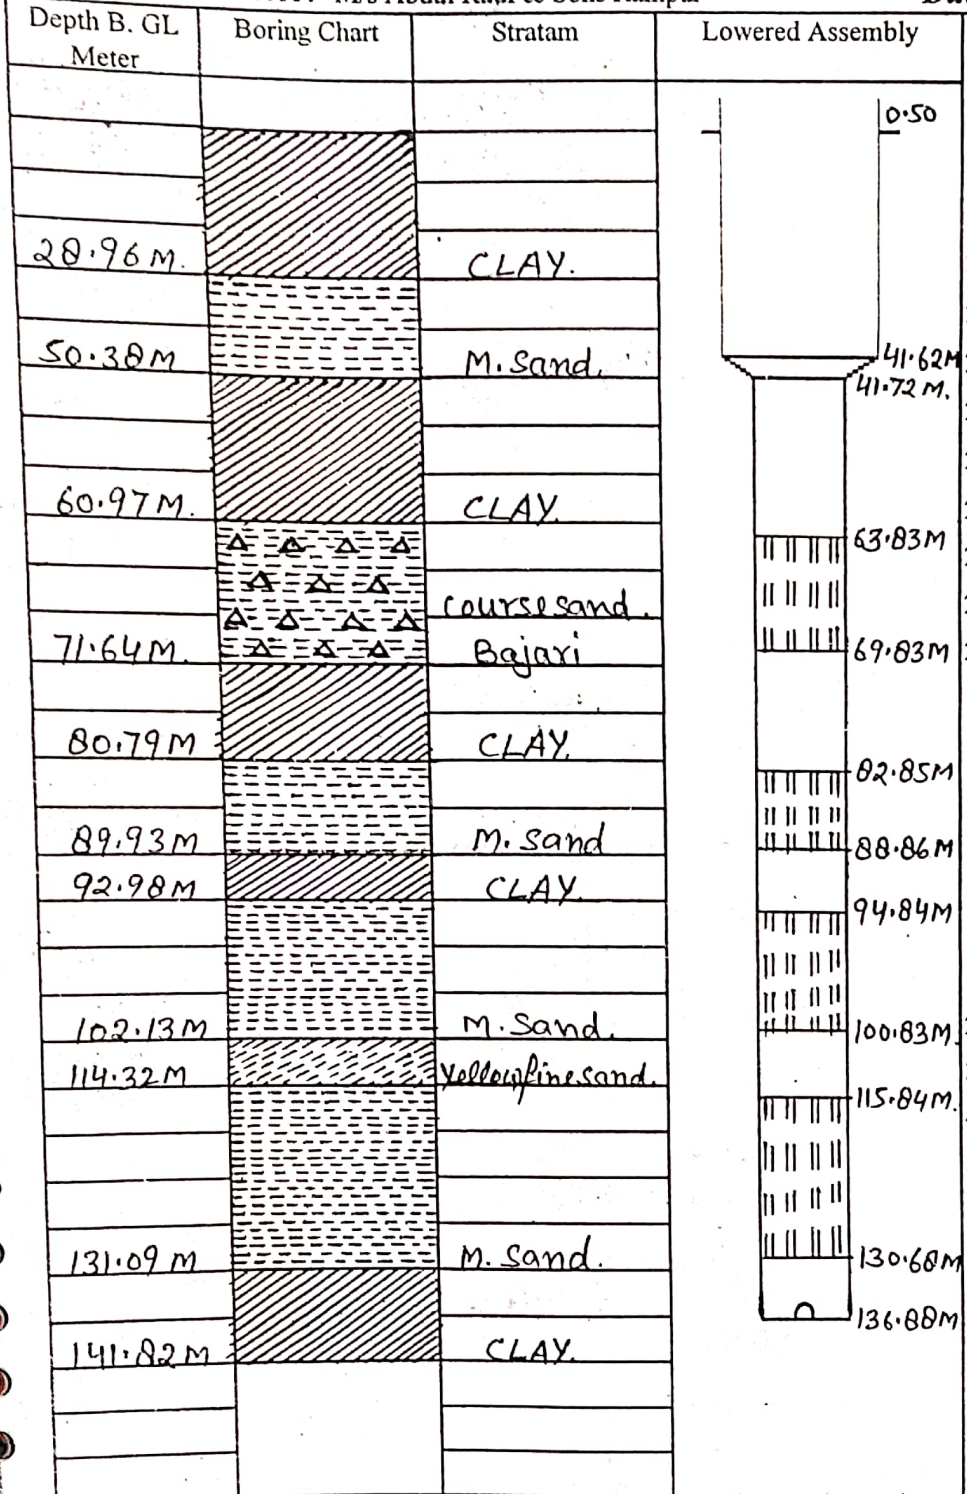 M/s Abdul
& Sons Rampur
Depth B. GL
Meter
Boring Chart
Stratam
Lowered Assembly
0.50
28.96 M.
CLAY.
50.38 M
M. Sand.
41.62M
41.72 M.
60.97 M.
CLAY.
63.83M
course sand.
71.64 M.
Bajari
69.83M
80.79 M
CLAY.
82.85M
89.93 M
M. Sand
88.86M
92.98 M
CLAY.
94.84M
102.13 M
M. Sand.
100.83M.
114.32 M
Yellow fine sand.
115.84M.
131.09 M
M. Sand.
130.68M
136.88M
141.82 M
CLAY.